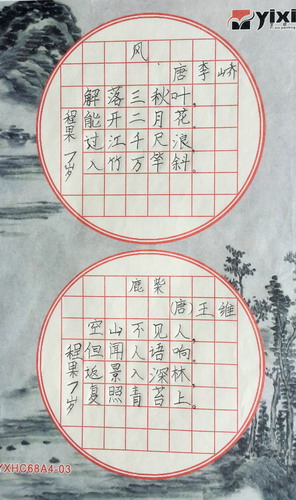 yixi
风
唐 李峤
解落三秋叶。
能开二月花。
过江千尺浪。
入竹万竿斜。
程果 7岁
鹿柴
(唐)王维
空山不见人。
但闻人语响。
返景入深林。
复照青苔上。
程果 7岁
YXHC68A4-03